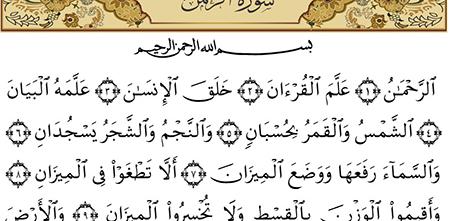 سورة الرحمن
بسم الله الرحمن الرحيم
الرَّحْمَٰنُ ﴿١﴾ عَلَّمَ الْقُرْءَانَ ﴿٢﴾ خَلَقَ الْإِنسَٰنَ ﴿٣﴾ عَلَّمَهُ الْبَيَانَ
﴿٤﴾ الشَّمْسُ وَالْقَمَرُ بِحُسْبَانٍ ﴿٥﴾ وَالنَّجْمُ وَالشَّجَرُ يَسْجُدَانِ ﴿٦﴾
وَالسَّمَآءَ رَفَعَهَا وَوَضَعَ الْمِيزَانَ ﴿٧﴾ أَلَّا تَطْغَوْا فِى الْمِيزَانِ ﴿٨﴾
وَأَقِيمُوا الْوَزْنَ بِالْقِسْطِ وَلَا تُخْسِرُوا الْمِيزَانَ ﴿٩﴾ وَالْأَرْضَ